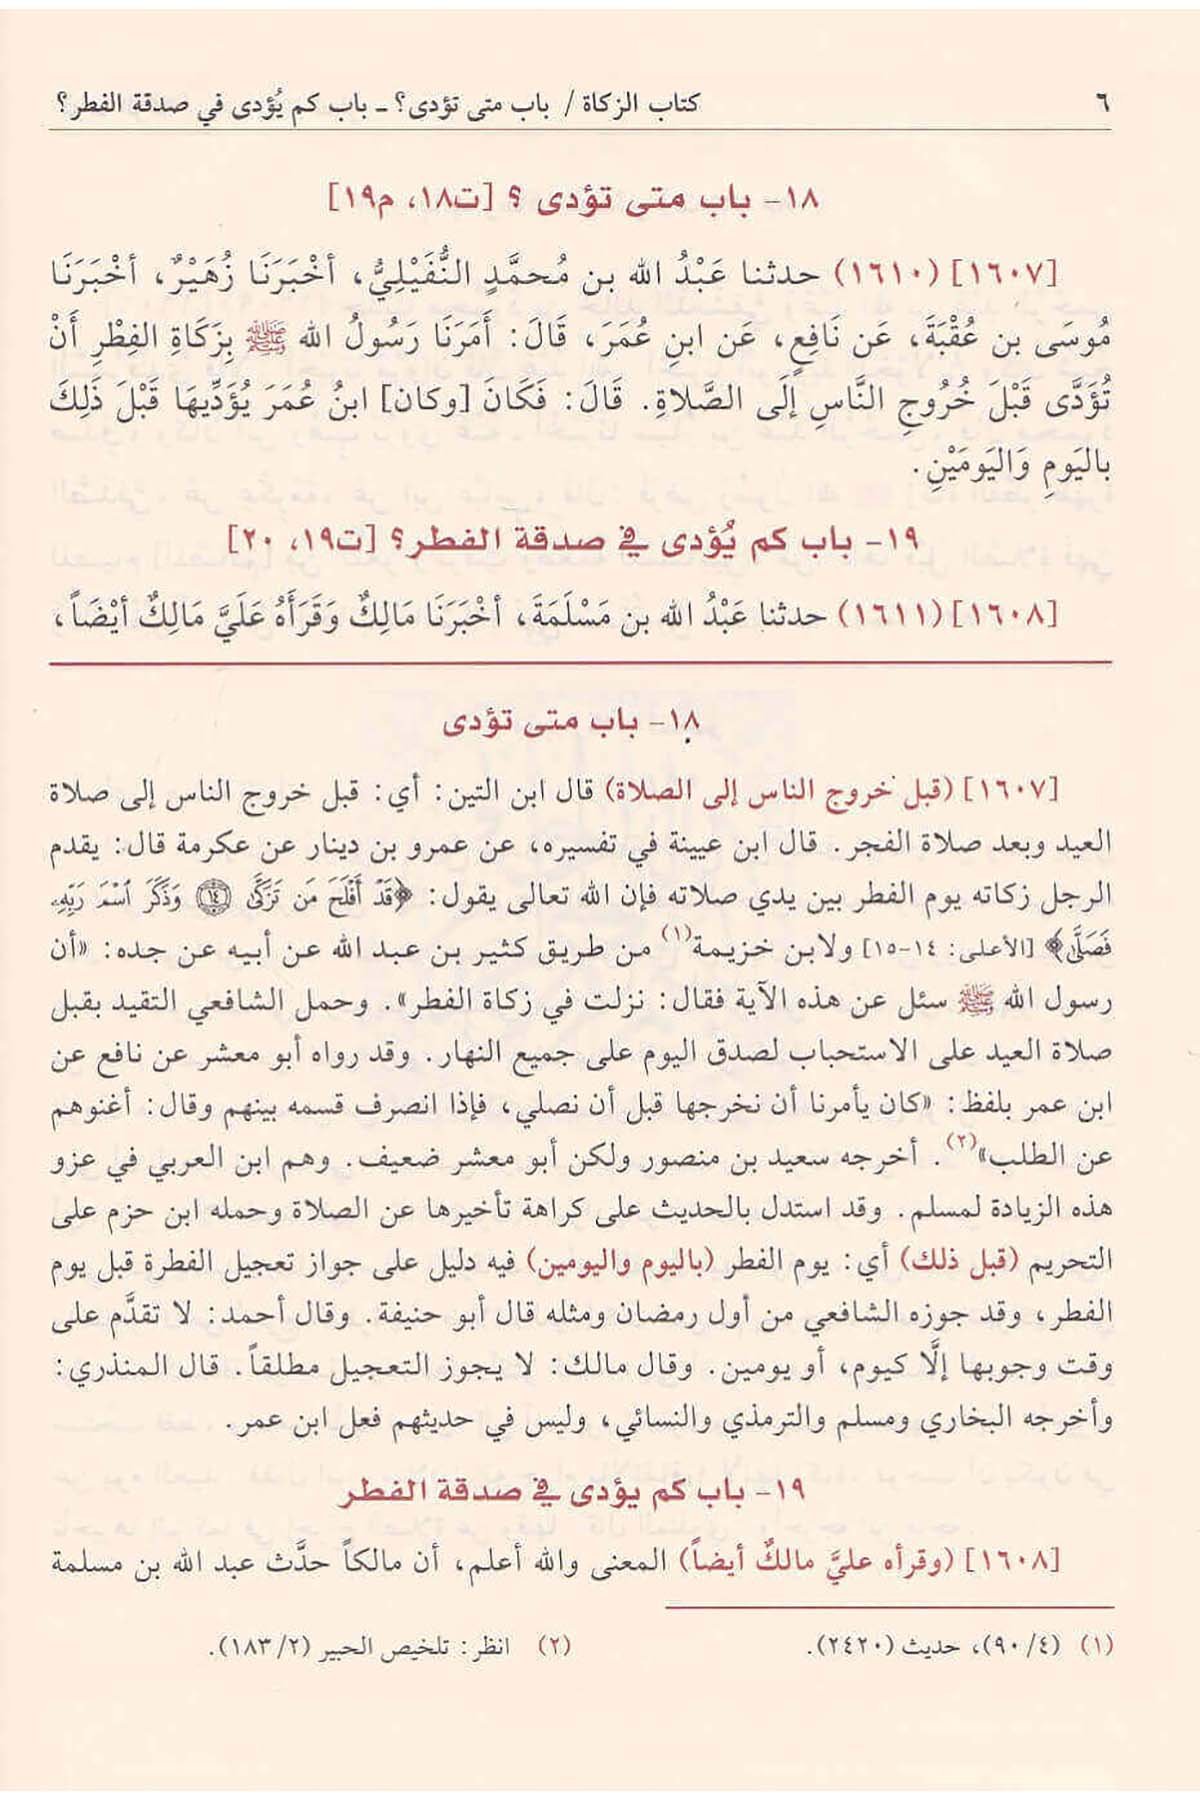 ٦
كتاب الزكاة / باب متى تؤدى؟ ـ باب كم يُؤدى في صدقة الفطر؟
١٨- باب متى تؤدى ؟ [ت١٨، م١٩]
[١٦٠٧] (١٦١٠) حدثنا عَبْدُ الله بن مُحمَّدٍ النُّفَيْلِيُّ، أخْبَرَنَا زُهَيْرٌ، أخْبَرَنَا
مُوسَى بن عُقْبَةَ، عَن نَافِعٍ، عَن ابنِ عُمَرَ، قَالَ: أَمَرَنَا رَسُولُ الله ﷺ بِزَكَاةِ الفِطْرِ أَنْ
تُؤَدَّى قَبْلَ خُرُوجِ النَّاسِ إلَى الصَّلَاةِ. قَالَ: فَكَانَ [وكان] ابنُ عُمَرَ يُؤَدِّيهَا قَبْلَ ذَلِكَ
بالیَومِ وَاليَومَيْنِ.
١٩- باب كم يُؤدى في صدقة الفطر؟ [ت١٩، ٢٠]
[١٦٠٨] (١٦١١) حدثنا عَبْدُ الله بن مَسْلَمَةَ، أخْبَرَنَا مَالِكٌ وَقَرَأَهُ عَلَيَّ مَالِكٌ أيْضَاً،
١٨- باب متى تؤدى
[١٦٠٧] (قبل خروج الناس إلى الصلاة) قال ابن التين: أي: قبل خروج الناس إلى صلاة
العيد وبعد صلاة الفجر. قال ابن عيينة في تفسيره، عن عمرو بن دينار عن عكرمة قال: يقدم
الرجل زكاته يوم الفطر بين يدي صلاته فإن الله تعالى يقول: ﴿قَدْ أَفْلَحَ مَن تَزَكَّىٰ ﴿١٤﴾ وَذَكَرَ ٱسْمَ رَبِّهِۦ
فَصَلَّىٰ﴾ [الأعلى: ١٤-١٥] ولابن خزيمة(١) من طريق كثير بن عبد الله عن أبيه عن جده: «أن
رسول الله ﷺ سئل عن هذه الآية فقال: نزلت في زكاة الفطر». وحمل الشافعي التقيد بقبل
صلاة العيد على الاستحباب لصدق اليوم على جميع النهار. وقد رواه أبو معشر عن نافع عن
ابن عمر بلفظ: «كان يأمرنا أن نخرجها قبل أن نصلي، فإذا انصرف قسمه بينهم وقال: أغنوهم
عن الطلب»(٢). أخرجه سعيد بن منصور ولكن أبو معشر ضعيف. وهم ابن العربي في عزو
هذه الزيادة لمسلم. وقد استدل بالحديث على كراهة تأخيرها عن الصلاة وحمله ابن حزم على
التحريم (قبل ذلك) أي: يوم الفطر (باليوم واليومين) فيه دليل على جواز تعجيل الفطرة قبل يوم
الفطر، وقد جوزه الشافعي من أول رمضان ومثله قال أبو حنيفة. وقال أحمد: لا تقدَّم على
وقت وجوبها إلَّا كيوم، أو يومين. وقال مالك: لا يجوز التعجيل مطلقاً. قال المنذري:
وأخرجه البخاري ومسلم والترمذي والنسائي، وليس في حديثهم فعل ابن عمر.
١٩- باب كم يؤدى في صدقة الفطر
[١٦٠٨] (وقرأه عليَّ مالكٌ أيضاً) المعنى والله أعلم، أن مالكاً حدَّث عبد الله بن مسلمة
(١) (٩٠/٤)، حديث (٢٤٢٠).
(٢) انظر: تلخيص الحبير (١٨٣/٢).